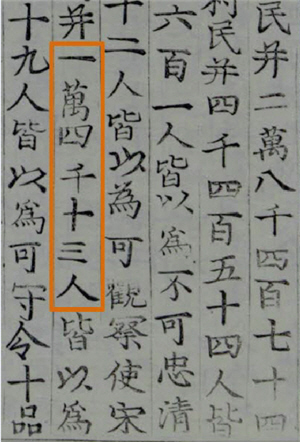 民并二萬八千四百七十四
民并四千四百五十四人皆
六百一人皆以爲不可忠清
十二人皆以為可 觀察使宋
并一萬四千十三人皆以爲
十九人皆以爲可守令十品